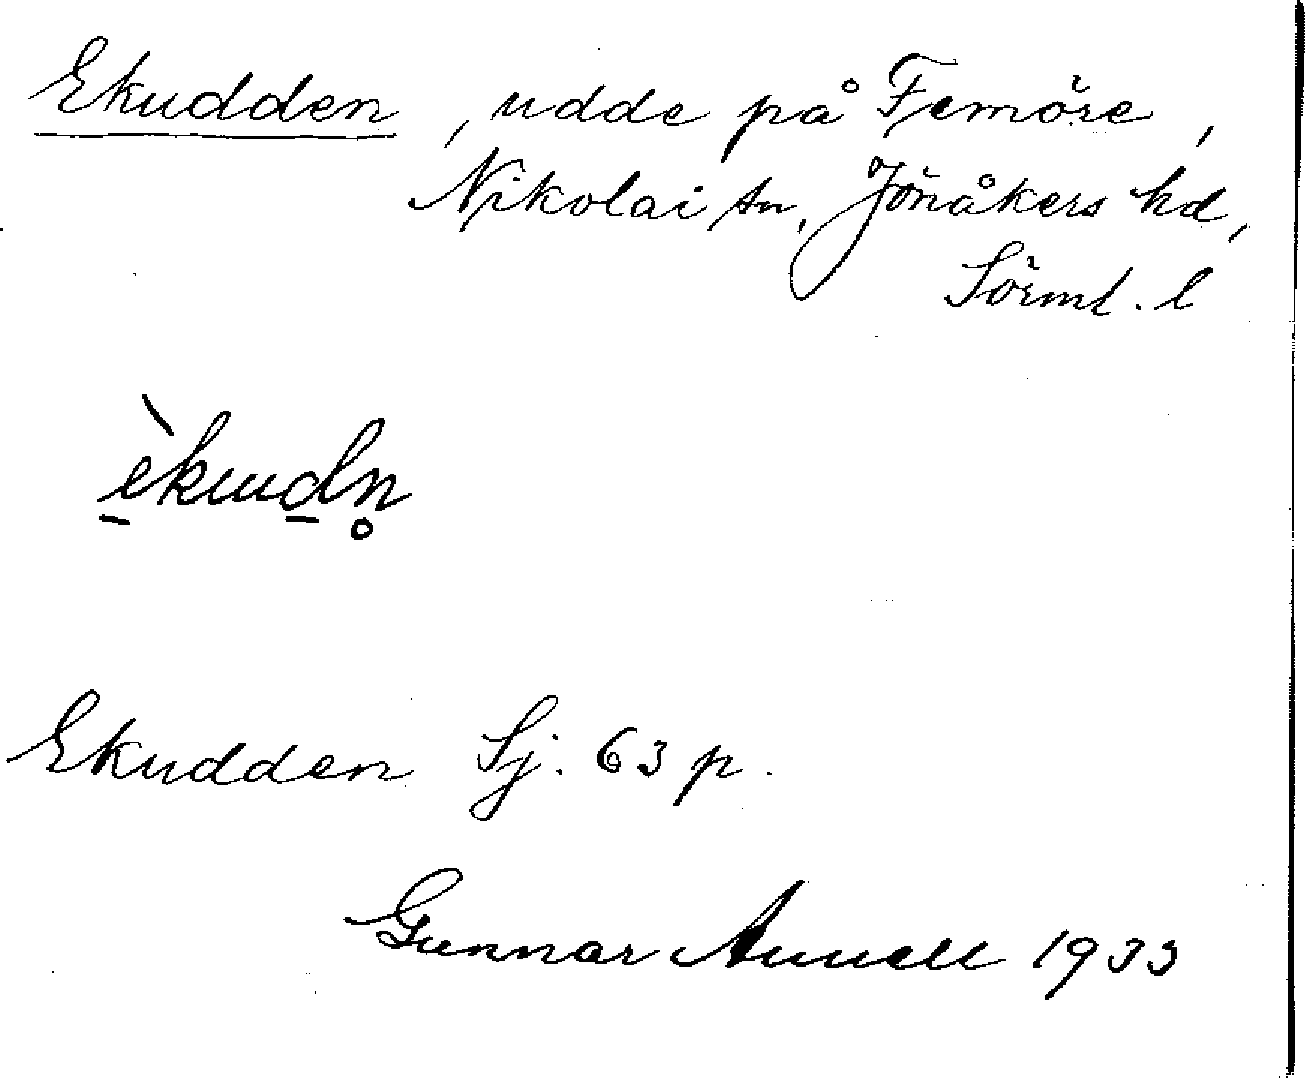 Ekudden, udde på Femöre,
Nikolai sn, Jönåkers hd,
Sörml. l
èkudn̥
Ekudden Sj. 63 p.
Gunnar Annell 1933